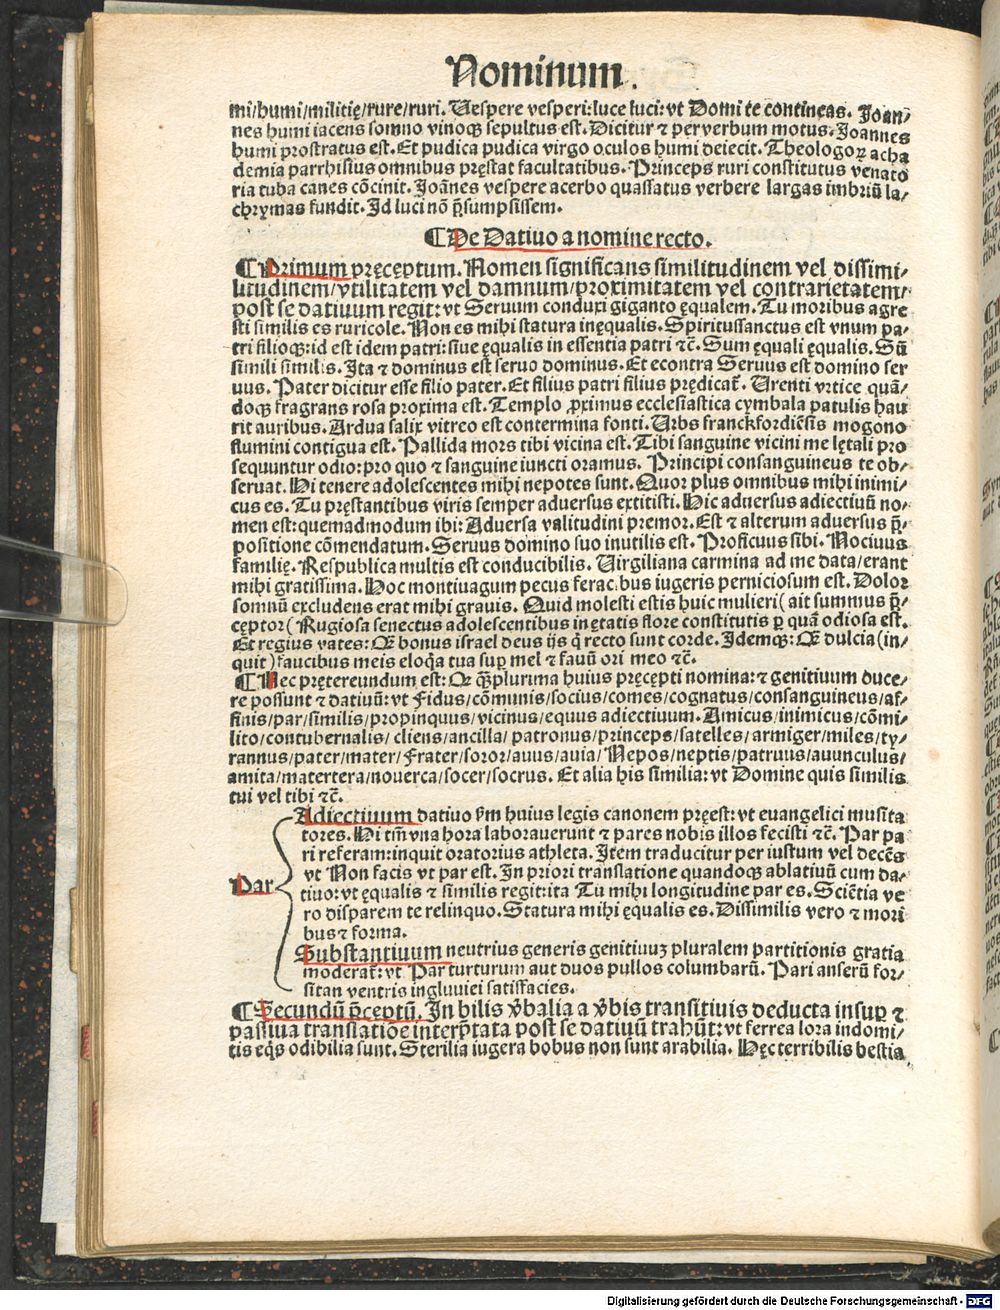 Nominum.
mi/humi/militię/rure/ruri. Uespere vesperi:luce luci:vt Domi te contineas. Joan-
nes humi iacens somno vinoqꝫ sepultus est. Dicitur ⁊ per verbum motus. Joannes
humi prostratus est. Et pudica pudica virgo oculos humi deiecit. Theologoꝝ acha
demia parrhisius omnibus pręstat facultatibus. Princeps ruri constitutus venato
ria tuba canes cōcinit. Joānes vespere acerbo quassatus verbere largas imbriū la-
chrymas fundit. Id luci nō p̄sumpsissem.
¶ De Datiuo a nomine recto.
¶ Primum pręceptum. Nomen significans similitudinem vel dissimi-
litudinem/vtilitatem vel damnum/proximitatem vel contrarietatem
post se datiuum regit: vt Seruum conduxi giganto ęqualem. Tu moribus agre
sti similis es ruricole. Non es mihi statura inęqualis. Spiritussanctus est vnum pa-
tri filioqꝫ: id est idem patri: siue ęqualis in essentia patri ⁊c̄. Sum ęquali ęqualis. Sū
simili similis. Ita ⁊ dominus est seruo dominus. Et econtra Seruus est domino ser
uus. Pater dicitur esse filio pater. Et filius patri filius prędicat̄. Urenti vrtice quā-
doqꝫ fragrans rosa proxima est. Templo ꝓximus ecclesiastica cymbala patulis hau
rit auribus. Ardua salix vitreo est contermina fonti. Urbs franckfordiēsis mogono
flumini contigua est. Pallida mors tibi vicina est. Tibi sanguine vicini me lętali pro
sequuntur odio: pro quo ⁊ sanguine iuncti oramus. Principi consanguineus te ob-
seruat. Hi tenere adolescentes mihi nepotes sunt. Quor plus omnibus mihi inimi-
cus es. Tu pręstantibus viris semper aduersus extitisti. Hic aduersus adiectiuū no-
men est: quemadmodum ibi: Aduersa valitudini premor. Est ⁊ alterum aduersus p̄-
positione cōmendatum. Seruus domino suo inutilis est. Proficuus sibi. Nociuus
familię. Respublica multis est conducibilis. Uirgiliana carmina ad me data/erant
mihi gratissima. Hoc montiuagum pecus feracibus iugeris perniciosum est. Dolor
somnū excludens erat mihi grauis. Quid molesti estis huic mulieri (ait summus p̄-
cęptor( Rugiosa senectus adolescentibus in ętatis flore constitutis ꝑ quā odiosa est.
Et regius vates: Q̄ bonus israel deus ijs q̄ recto sunt corde. Idemqꝫ: Q̄ dulcia (in-
quit) faucibus meis eloq̄a tua suꝑ mel ⁊ fauū ori meo ⁊c̄.
¶ Nec prętereundum est: Q̄ q̄ꝫplurima huius pręcępti nomina: ⁊ genitiuum duce-
re possunt ⁊ datiuū: vt Fidus/cōmunis/socius/comes/cognatus/consanguineus/af-
finis/par/similis/propinquus/vicinus/equus adiectiuum. Amicus/inimicus/cōmi-
lito/contubernalis/ cliens/ancilla/ patronus/princeps/satelles/ armiger/miles/ty-
rannus/pater/mater/ Frater/soror/auus/auia/ Nepos/neptis/patruus/auunculus/
amita/matertera/nouerca/socer/socrus. Et alia his similia: vt Domine quis similis
tui vel tibi ⁊c̄.
Adiectiuum datiuo s̄m huius legis canonem pręest: vt euangelici musita
tores. Hi tm̄ vna hora laborauerunt ⁊ pares nobis illos fecisti ⁊c̄. Par pa
ri referam: inquit oratorius athleta. Item traducitur per iustum vel decēs
vt Non facis vt par est. In priori translatione quandoqꝫ ablatiuū cum da-
Par
tiuo: vt ęqualis ⁊ similis regit: ita Tu mihi longitudine par es. Sciētia ve
ro disparem te relinquo. Statura mihi ęqualis es. Dissimilis vero ⁊ mori
bus ⁊ forma.
Substantiuum neutrius generis genitiuuꝫ pluralem partitionis gratia
moderat̄: vt Par turturum aut duos pullos columbarū. Pari anserū for-
sitan ventris ingluuiei satisfacies.
¶ Secundū p̄ceptū. In bilis v̄balia a v̄bis transitiuis deducta insuꝑ ⁊
passiua translatiōe interp̄tata post se datiuū trahūt: vt ferrea lora indomi-
tis eq̄s odibilia sunt. Sterilia iugera bobus non sunt arabilia. Hęc terribilis bestia
Digitalisierung gefördert durch die Deutsche Forschungsgemeinschaft - DFG